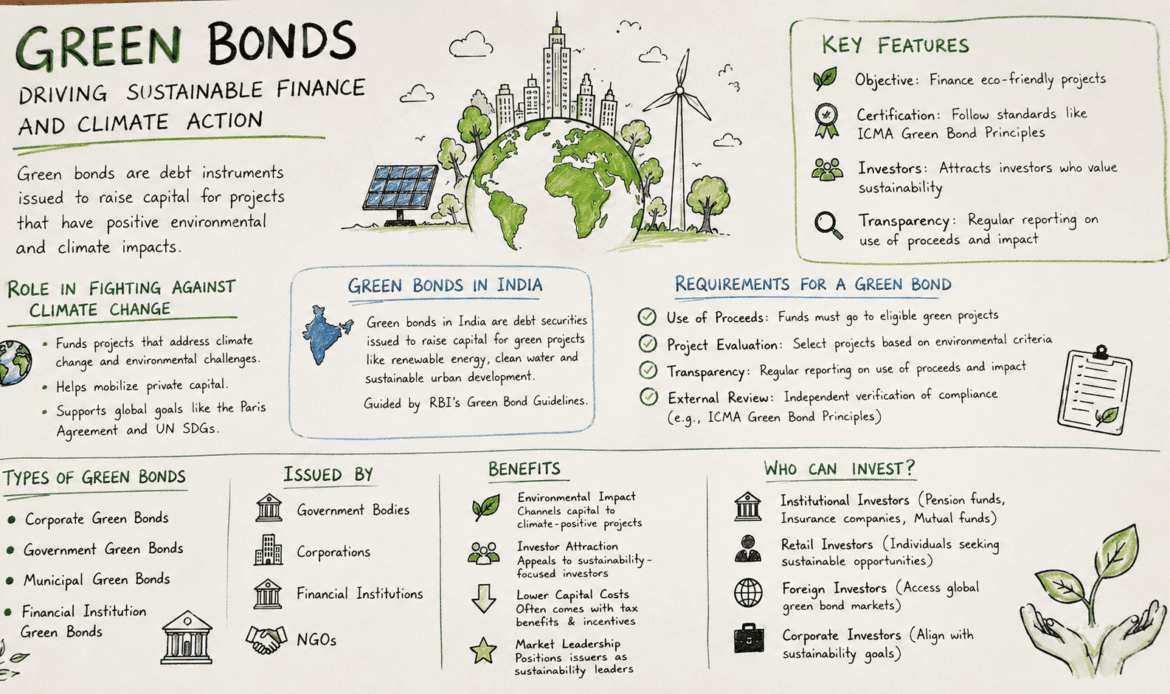 GREEN BONDS
DRIVING SUSTAINABLE FINANCE
AND CLIMATE ACTION
Green bonds are debt instruments
issued to raise capital for projects
that have positive environmental
and climate impacts.
KEY FEATURES
Objective: Finance eco-friendly projects
Certification: Follow standards like
ICMA Green Bond Principles
Investors: Attracts investors who value
sustainability
Transparency: Regular reporting on
use of proceeds and impact
ROLE IN FIGHTING AGAINST
CLIMATE CHANGE
• Funds projects that address climate
change and environmental challenges.
• Helps mobilize private capital.
• Supports global goals like the Paris
Agreement and UN SDGs.
GREEN BONDS IN INDIA
Green bonds in India are debt securities
issued to raise capital for green projects
like renewable energy, clean water and
sustainable urban development.
Guided by RBI's Green Bond Guidelines.
REQUIREMENTS FOR A GREEN BOND
Use of Proceeds: Funds must go to eligible green projects
Project Evaluation: Select projects based on environmental criteria
Transparency: Regular reporting on use of proceeds and impact
External Review: Independent verification of compliance
(e.g., ICMA Green Bond Principles)
TYPES OF GREEN BONDS
• Corporate Green Bonds
• Government Green Bonds
• Municipal Green Bonds
• Financial Institution
Green Bonds
ISSUED BY
Government Bodies
Corporations
Financial Institutions
NGOs
BENEFITS
Environmental Impact
Channels capital to
climate-positive projects
Investor Attraction
Appeals to sustainability-
focused investors
Lower Capital Costs
Often comes with tax
benefits & incentives
Market Leadership
Positions issuers as
sustainability leaders
WHO CAN INVEST?
Institutional Investors (Pension funds,
Insurance companies, Mutual funds)
Retail Investors (Individuals seeking
sustainable opportunities)
Foreign Investors (Access global
green bond markets)
Corporate Investors (Align with
sustainability goals)